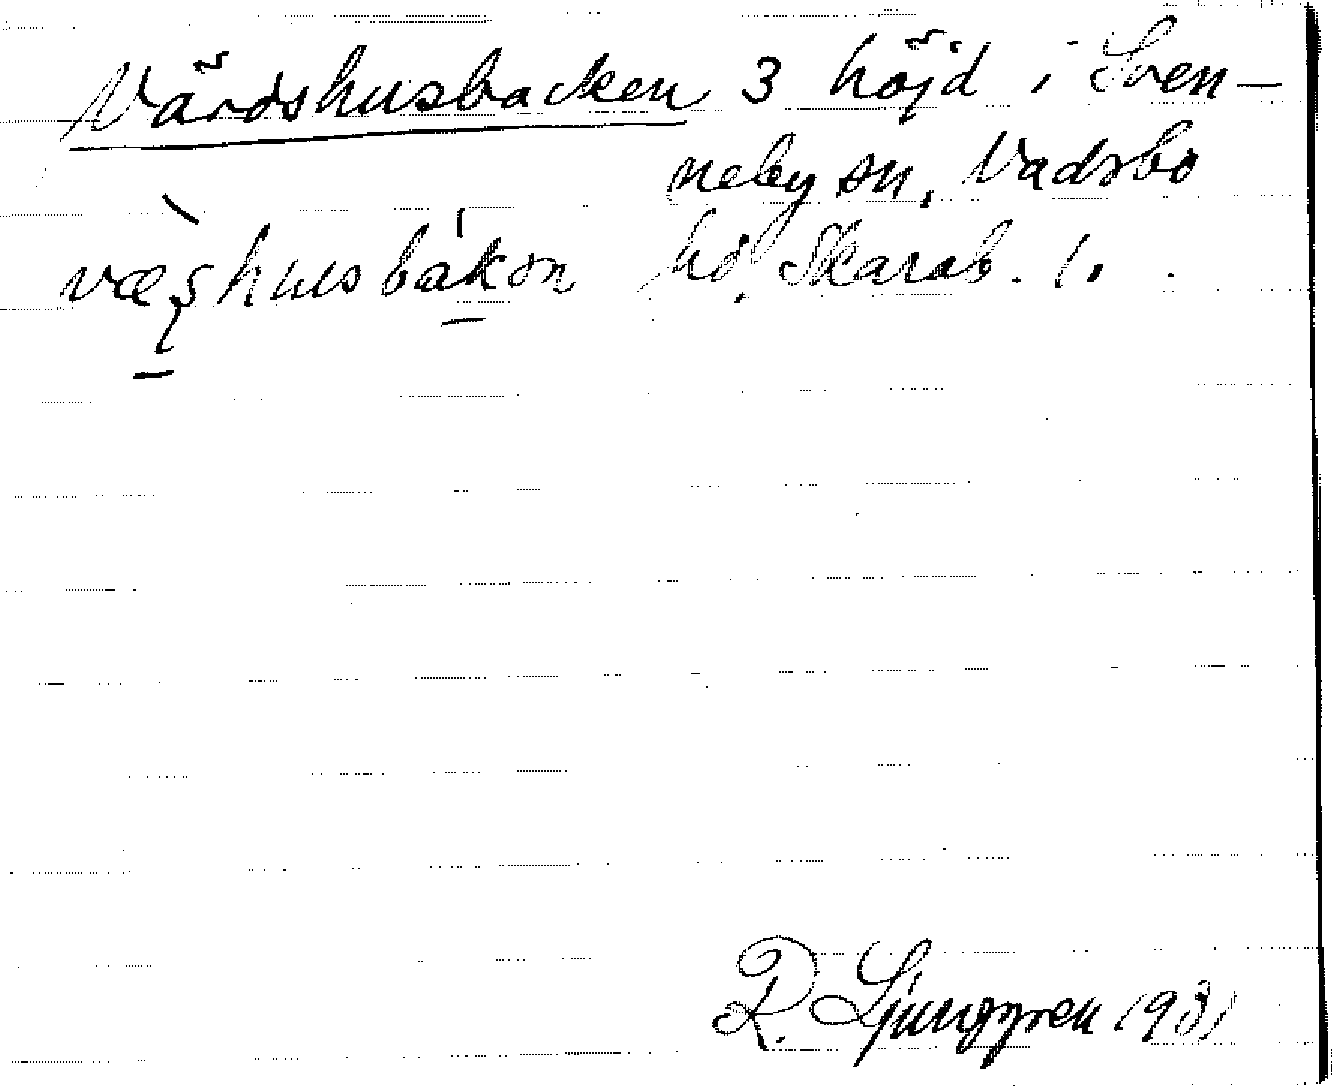 Värdshusbacken 3 höjd i Sven-
neby sn, Vadsbo
væʂhusbakən hd, Skarab. l.
R. Ljunggren 1931